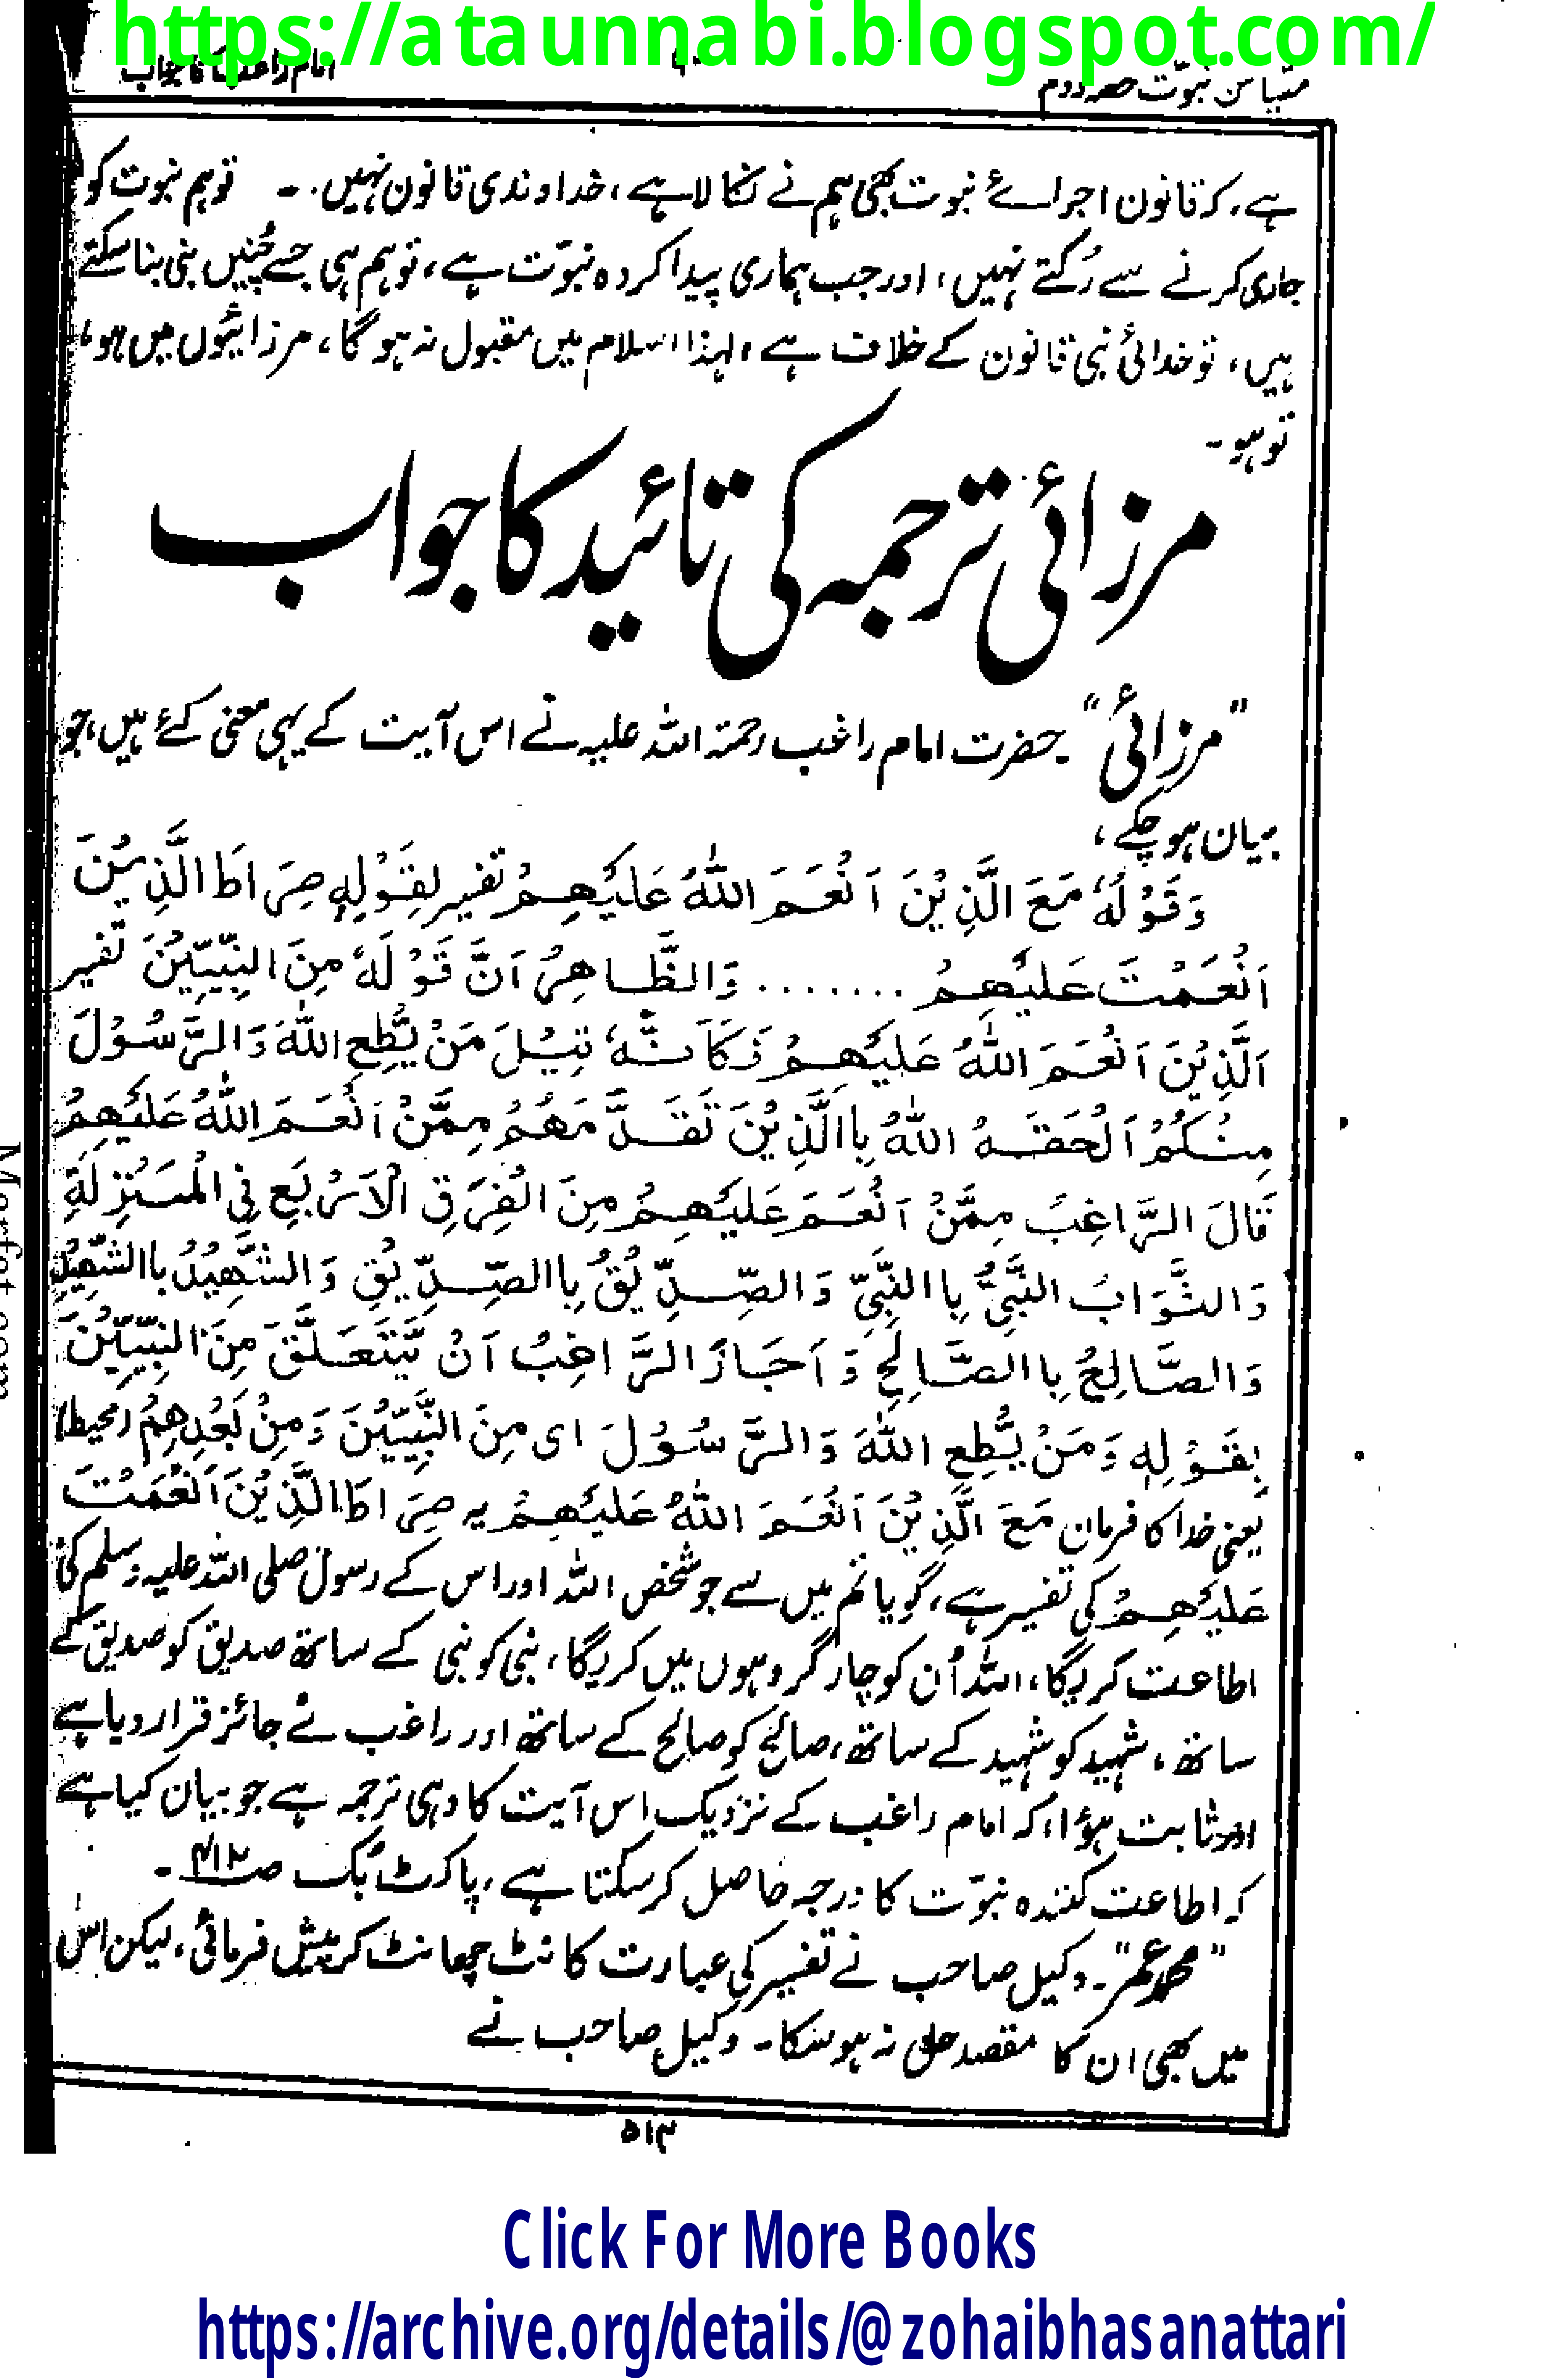 https://ataunnabi.blogspot.com/
مقیاس نبوّت حصہ دوم
امام راغب کا جواب
ہے، کہ قانون اجرائے نبوت بھی ہم نے نکالا ہے، خداوندی قانون نہیں۔ تو ہم نبوت کو
جاری کرنے سے رُکتے نہیں، اور جب ہماری پیدا کردہ نبوّت ہے، تو ہم ہی جسے چُنیں نبی بنا سکتے
ہیں، تو خدائی نبی قانون کے خلاف ہے، لہذا اسلام میں مقبول نہ ہو گا، مرزائیوں میں ہو،
تو ہو۔
مرزائی ترجمہ کی تائید کا جواب
"مرزائی"۔ حضرت امام راغب رحمۃ اللہ علیہ نے اس آیت کے یہی معنی کئے ہیں، جو
بیان ہو چکے،
وَقَوْلُهٗ مَعَ الَّذِیْنَ اَنْعَمَ اللّٰهُ عَلَیْهِمْ تفسیر لِقَوْلِهٖ صِرَاطَ الَّذِیْنَ
اَنْعَمْتَ عَلَیْهِمْ ....... وَالظَّاهِرُ اَنَّ قَوْلَهٗ مِنَ النَّبِیِّیْنَ تفسیر
اَلَّذِیْنَ اَنْعَمَ اللّٰهُ عَلَیْهِمْ فَكَاَنَّهٗ قِیْلَ مَنْ یُّطِعِ اللّٰهَ وَالرَّسُوْلَ
مِنْكُمْ اَلْحَقَهُ اللّٰهُ بِاالَّذِیْنَ تَقَدَّمَهُمْ مِمَّنْ اَنْعَمَ اللّٰهُ عَلَیْهِمْ
قَالَ الرَّاغِبُ مِمَّنْ اَنْعَمَ عَلَیْهِمْ مِنَ الْفِرَقِ الْاَرْبَعِ فِی الْمَنْزِلَةِ
وَالثَّوَابِ النَّبِیُّ بِاالنَّبِیِّ وَالصِّدِّیْقُ بِاالصِّدِّیْقِ وَالشَّهِیْدُ بِاالشَّهِیْدِ
وَالصَّالِحُ بِاالصَّالِحِ وَاَجَازَ الرَّاغِبُ اَنْ یَّتَعَلَّقَ مِنَ النَّبِیِّیْنَ
بِقَوْلِهٖ وَمَنْ یُّطِعِ اللّٰهَ وَالرَّسُوْلَ ای مِنَ النَّبِیِّیْنَ وَمِنْ بَعْدِهِمْ (محیط)
یعنی خدا کا فرمان مَعَ الَّذِیْنَ اَنْعَمَ اللّٰهُ عَلَیْهِمْ یہ صِرَاطَ الَّذِیْنَ اَنْعَمْتَ
عَلَیْهِمْ کی تفسیر ہے، گویا تم میں سے جو شخص اللہ اور اس کے رسول صلی اللہ علیہ وسلم کی
اطاعت کریگا، اللہ اُن کو چار گروہوں میں کریگا، نبی کو نبی کے ساتھ صدیق کو صدیق کے
ساتھ، شہید کو شہید کے ساتھ، صالح کو صالح کے ساتھ اور راغب نے جائز قرار دیا ہے
اور ثابت ہؤا، کہ امام راغب کے نزدیک اس آیت کا وہی ترجمہ ہے جو بیان کیا ہے
کہ اطاعت کنندہ نبوّت کا درجہ حاصل کر سکتا ہے، پاکٹ بک ص
"محمد عمر"۔ وکیل صاحب نے تفسیر کی عبارت کانٹ چھانٹ کر پیش فرمائی، لیکن اس
میں بھی ان کا مقصد حل نہ ہو سکا۔ وکیل صاحب نے
۵۱۳
Marfat.com
Click For More Books
https://archive.org/details/@zohaibhasanattari